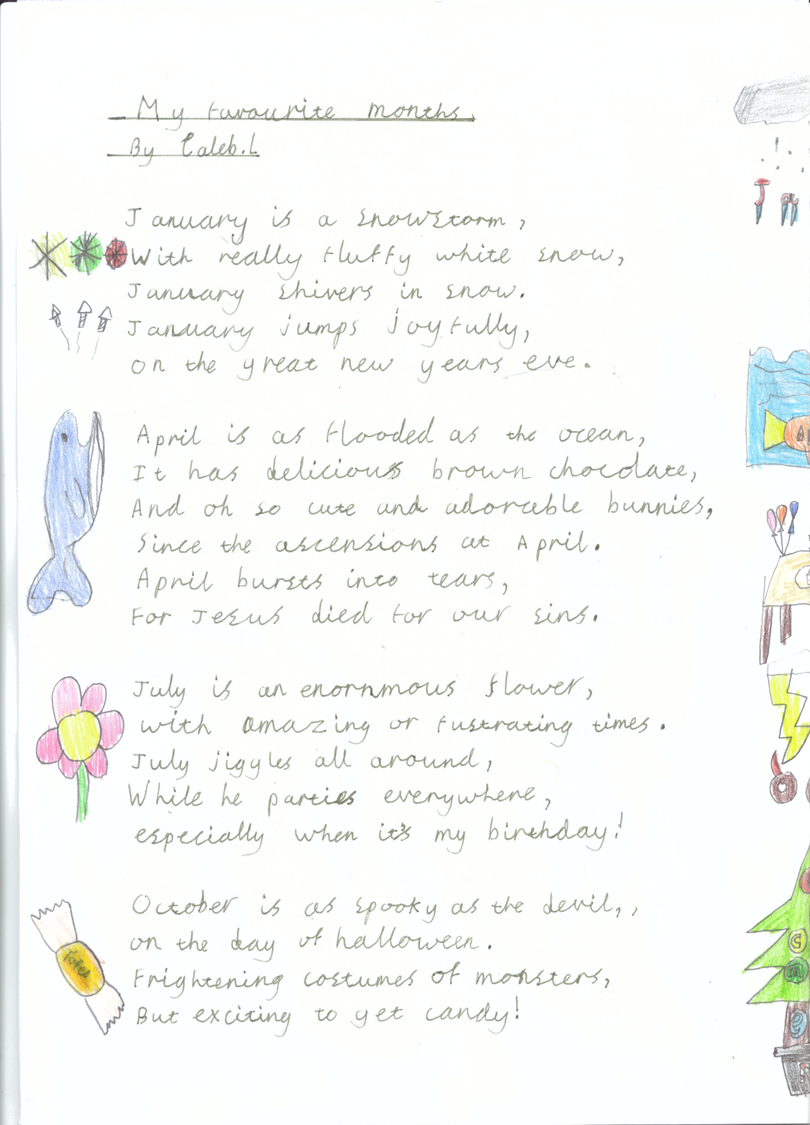 My favourite months.
By Caleb.L
January is a snowstorm,
With really fluffy white snow,
January shivers in snow.
January jumps joyfully,
on the great new years eve.
April is as flooded as the ocean,
It has delicious brown chocolate,
And oh so cute and adorable bunnies,
Since the ascensions at April.
April bursts into tears,
For Jesus died for our sins.
July is an enornmous flower,
with amazing or fustrating times.
July jiggles all around,
While he parties everywhere,
especially when it's my birthday!
October is as spooky as the devil,,
on the day of halloween.
Frightening costumes of monsters,
But exciting to get candy!